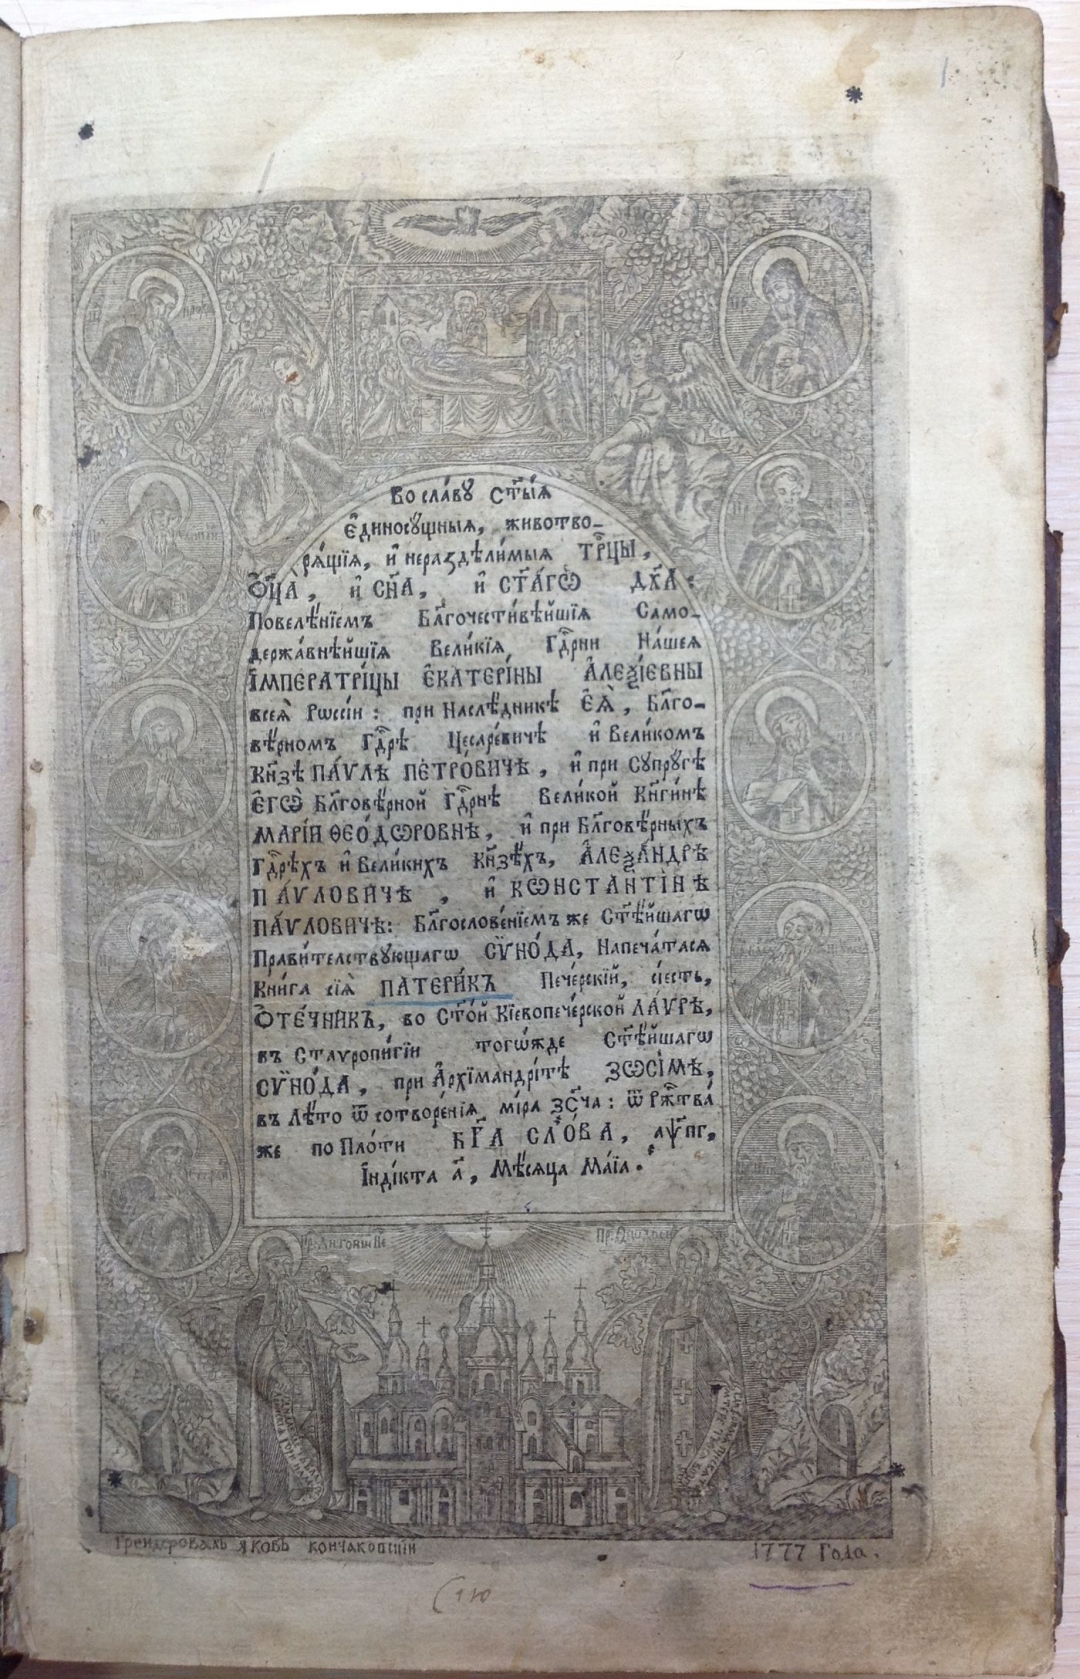 Во сла́вꙋ Ст҃ы́ѧ
є҆диносꙋ́щныѧ, животво-
рѧ́щїѧ, и҆ нераздѣли́мыѧ ТРⷪ҇ЦЫ,
Ѻ҆ЦА҃, и҆ СН҃А, и҆ СТ҃А́ГѠ ДХ҃А:
Повелѣ́нїемъ Бл҃гочести́вѣйшїѧ Само-
держа́внѣйшїѧ Вели́кїѧ Гдⷭ҇рни На́шеѧ
І҆МПЕРАТРІ́ЦЫ Є҆КАТЕРІ́НЫ А҆ЛЕѮІ́ЕВНЫ
всеѧ̀ Рѡссі́и: при Наслѣ́дникѣ Є҆Ѧ̀, Бл҃го-
вѣ́рномъ Гдⷭ҇рѣ Цесаре́вичѣ и҆ Вели́комъ
Кн҃зѣ ПА́ѴЛѢ ПЕТРО́ВИЧѢ, и҆ при Сꙋпрꙋ́гѣ
Є҆ГѠ̀ Бл҃говѣ́рной Гдⷭ҇рнѣ Вели́кой Кн҃ги́нѣ
МАРІ́И ѲЕО́ДѠРОВНѢ, и҆ при Бл҃говѣ́рныхъ
Гдⷭ҇рѣхъ и҆ Вели́кихъ Кн҃зѣ́хъ, А҆ЛЕѮА́НДРѢ
ПА́ѴЛОВИЧѢ, и҆ КѠНСТАНТІ́НѢ
ПА́ѴЛОВИЧѢ: Бл҃гослове́нїемъ же Ст҃ѣ́йшагѡ
Прави́телствꙋющагѡ СѴНО́ДА, Напеча́тасѧ
Кни́га сїѧ̀ ПАТЕРИ́КЪ Пече́рскїй, сіе́сть,
Ѻ҆ТЕ́ЧНИКЪ, во Ст҃о́й Кїевопече́рской ЛА́ѴРѢ,
въ Ставропи́гїи тогѡ́жде Ст҃ѣ́йшагѡ
СѴНО́ДА, при А҆рхїмандрі́тѣ ЗѠСІ́МѢ,
въ Лѣ́то ѿ сотворе́нїѧ мі́ра ҂зсч҃а: ѿ Рⷤ҇тва̀
же по Пло́ти БГ҃А СЛО́ВА, ҂аѱпг,
І҆нді́кта а҃, Мѣ́сѧца Ма́їа.
Пр: Антоній Пе
Грендеровалъ Яковъ кончаковскїи
1777 Года.